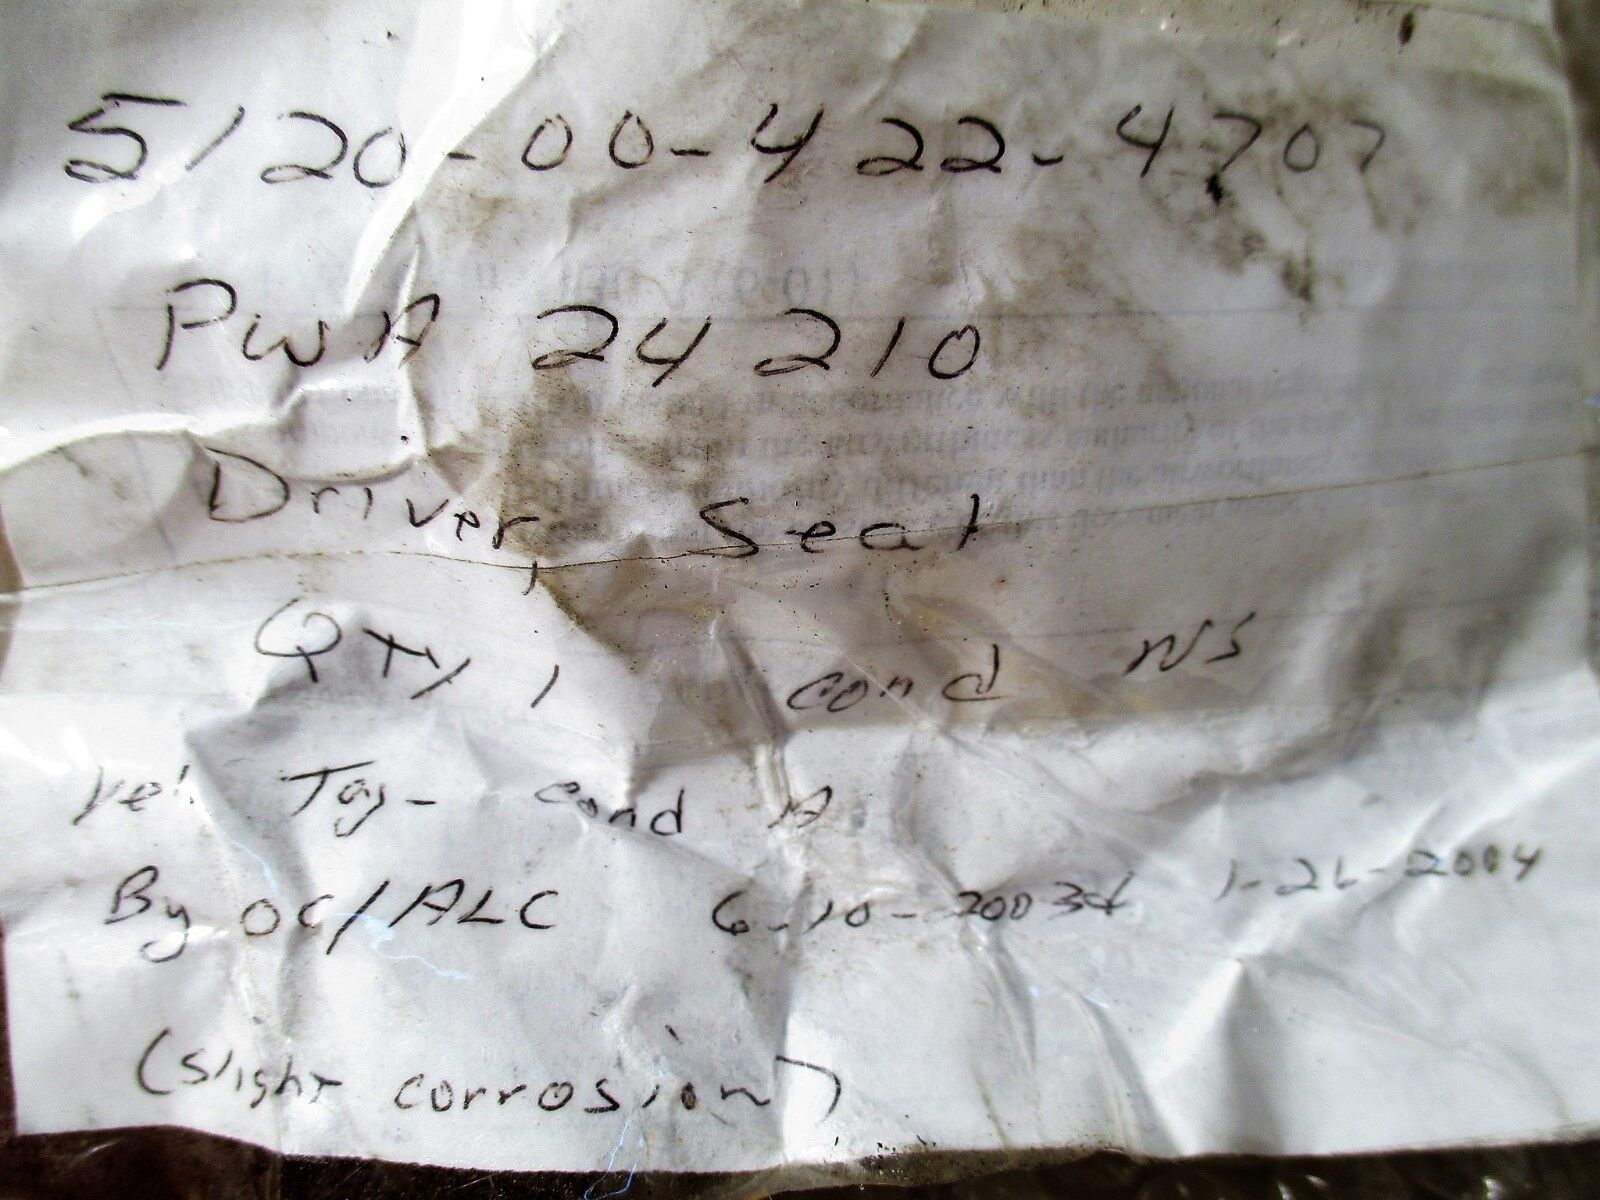 5120-00-422-4707
PWA 24210
Driver, Seat
QTY 1 cond NS
Yel. Tag- cond A
By OC/ALC 6-10-2003 & 1-26-2004
(Slight corrosion)